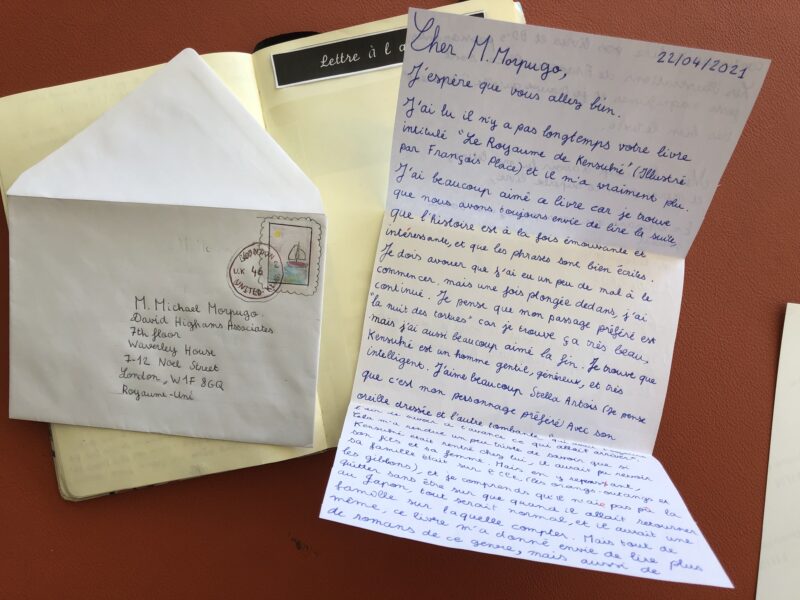 Lettre à l'a
Cher M. Morpugo,
22/04/2021
J'espère que vous allez bien.
J'ai lu il n'y a pas longtemps votre livre
intitulé "Le Royaume de Kensuké" (Illustré
par François Place) et il m'a vraiment plu.
J'ai beaucoup aimé ce livre car je trouve
que nous avons toujours envie de lire la suite,
que l'histoire est à la fois émouvante et
intéressante, et que les phrases sont bien écrites.
Je dois avouer que j'ai eu un peu de mal à le
commencer, mais une fois plongée dedans, j'ai
continué. Je pense que mon passage préféré est
"la nuit des tortues" car je trouve ça très beau,
mais j'ai aussi beaucoup aimé la fin. Je trouve que
Kensuké est un homme gentil, généreux, et très
intelligent. J'aime beaucoup Stella Artois (Je pense
que c'est mon personnage préféré) Avec son
oreille dressée et l'autre tombante
Cela m'a rendue un peu triste de savoir que si
Kensuké était rentré chez lui, il aurait pu revoir
son fils et sa femme. Mais, en y repensant,
sa famille était sur cette île (les orangs-outangs et
les gibbons), et je comprends qu'il n'aie pas pu la
quitter sans être sur que quand il allait retourner
au Japon, tout serait normal, et il aurait une
famille sur laquelle compter. Mais tout de
même, ce livre m'a donné envie de lire plus
de romans de ce genre, mais aussi de
U.K 46
UNITED
M. Michael Morpugo
David Highams Associates
7th floor
Waverley House
7-12 Noel Street
London, W1F 8GQ
Royaume-Uni